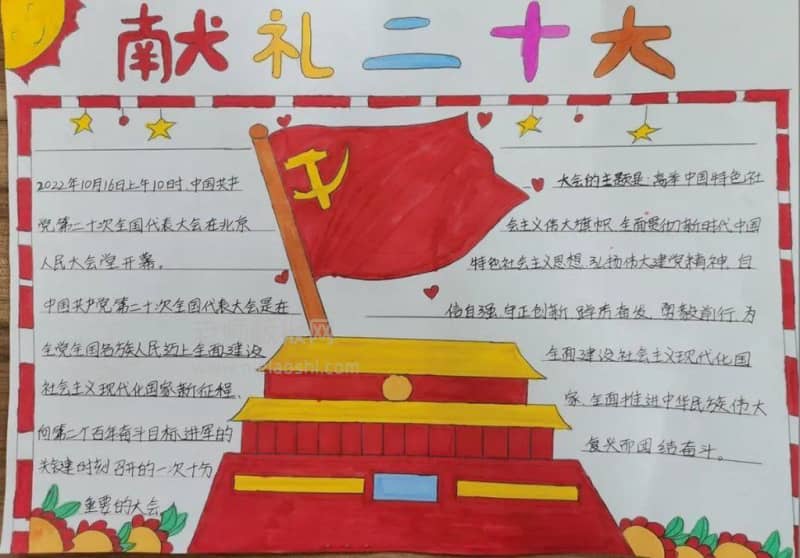 献礼二十大
2022年10月16日上午10时,中国共产
党第二十次全国代表大会在北京
人民大会堂开幕。
中国共产党第二十次全国代表大会是在
全党全国各族人民迈上全面建设
社会主义现代化国家新征程、
向第二个百年奋斗目标进军的
关键时刻召开的一次十分
重要的大会。
大会的主题是:高举中国特色社
会主义伟大旗帜,全面贯彻新时代中国
特色社会主义思想,弘扬伟大建党精神,自
信自强、守正创新,踔厉奋发、勇毅前行,为
全面建设社会主义现代化国
家、全面推进中华民族伟大
复兴而团结奋斗。